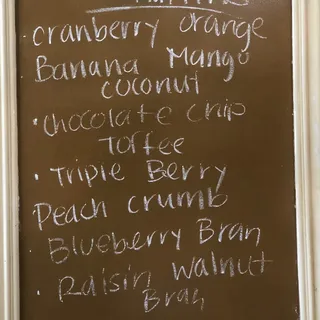 cranberry orange
Banana Mango
coconut
• chocolate chip
Toffee
• Triple Berry
Peach crumb
• Blueberry Bran
• Raisin Walnut
Bran